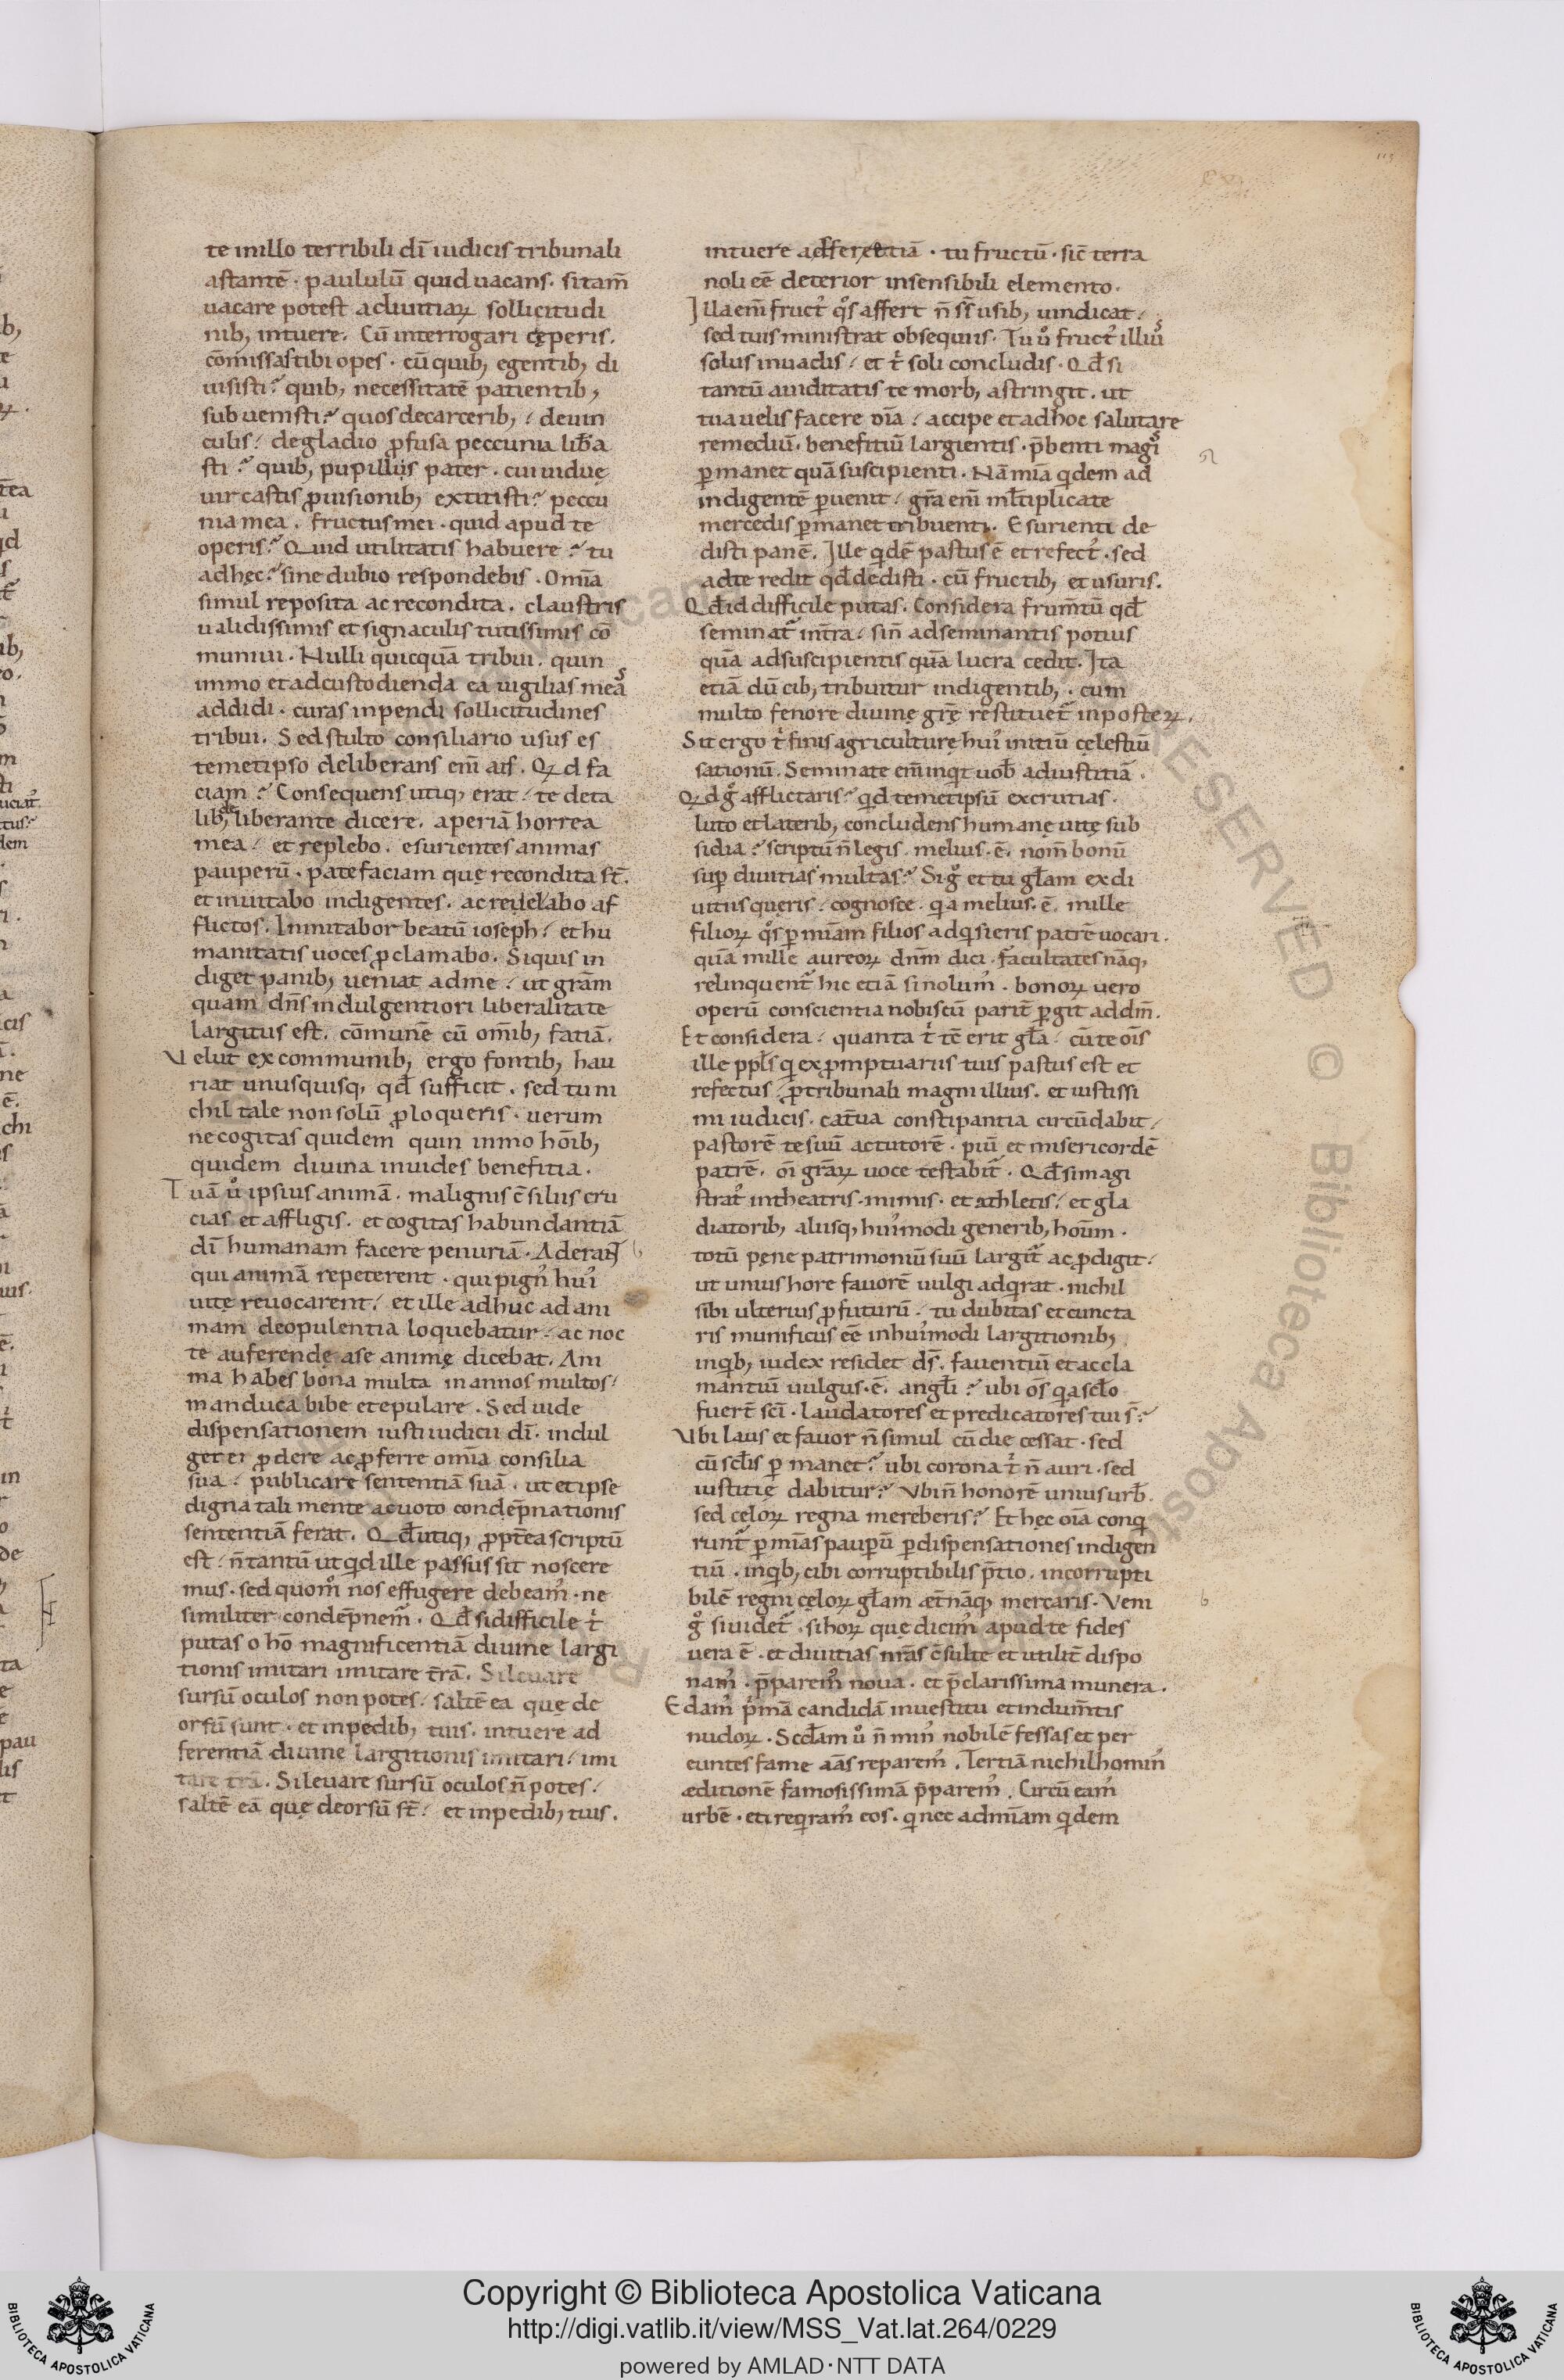 te inillo terribili dī iudicis tribunali
astantē · paululū quid uacans · si tam̄
uacare potest a diuitiaꝝ sollicitudi
nib; intuere. Cū interrogari cęperis.
cōmissas tibi opes · cū quib; egentib; di
uisisti? quib; necessitatē patientib;
subuenisti? quos de carcerib;/ de uin
culis/ de gladio ꝓfusa peccunia libera
sti? quib; pupillis pater · cui uiduę
uir castis ꝓuisionib; extitisti? peccu
nia mea. fructus mei · quid apud te
operis? Quid utilitatis habuere? tu
ad hęc? sine dubio respondebis. Om̄ia
simul reposita ac recondita. claustris
ualidissimis et signaculis tutissimis cō
muniui. Nulli quicquā tribui. quin
immo et ad custodienda ea uigilias meas
addidi · curas inpendi sollicitudines
tribui. Sed stulto consiliario usus es
temetipso deliberans em̄ ais. Qd fa
ciam? Consequens utiq; erat/ te de ta
lib; deliberante dicere. aperiā horrea
mea/ et replebo. esurientes animas
pauperū. patefaciam quę recondita st̄.
et inuitabo indigentes. ac releuabo af
flictos. Inmitabor beatū ioseph/ et hu
manitatis uoces ꝓclamabo. Siquis in
diget panib; ueniat ad me/ ut grām
quam dn̄s indulgentiori liberalitate
largitus est. cōmunē cū om̄ib; fatiā.
Velut ex communib; ergo fontib; hau
riat unusquisq; qđ sufficit. sed tu ni
chil tale non solū ꝓloqueris. uerum
ne cogitas quidem quin inmo hōib;
quidem diuina inuides benefitia.
Tuā ů ipsius animā. malignis c̄siliis cru
cias et affligis. et cogitas habundantiā
dī humanam facere penuriā. Aderant
qui animā repeterent. qui pign᾽ hui᾽
uitę reuocarent/ et ille adhuc ad ani
mam de opulentia loquebatur/ ac noc
te auferendę a se animę dicebat. Ani
ma habes bona multa in annos multos/
manduca bibe et epulare. Sed uide
dispensationem iusti iudicii dī. indul
get ei ꝓdere ac ꝓferre om̄ia consilia
sua/ publicare sententiā suā. ut et ipse
digna tali mente ac uoto condēpnationis
sententiā ferat. Qđ utiq; ꝓpt̄ea scriptū
est/ n̄ tantū ut qid ille passus sit nosce re
mus. sed quom̊ nos effugere debeam᾽. ne
similiter condēpnem᾽. Qđ si difficile t̍
putas o hō magnificentiā diuine largi
tionis imitari imitare t̄rā. Si leuare
sursū oculos non potes/ saltē ea quę de
orsū sunt. et in pedib; tuis. intuere ad
ferentiā diuine largitionis imitari/ imi
tare t̄rā. Si leuare sursū oculos n̄ potes/
saltē eā quę deorsū st̄/ et in pedib; tuis.
intuere adferentiā · tu fructū · sic̄ terra
noli eē deterior insensibili elemento.
Illa em̄ fruct᾽ q̊s affert n̄ suis usib; uindicat/
sed tuis ministrat obsequiis. Tu ů fruct᾽ illi᾽
solus inuadis/ et t̍ soli concludis. Qđ si
tantū auiditatis te morb; astringit. ut
tua uelis facere oīa/ accipe et ad hoc salutare
remediū. benefitiū largientis. p̄benti magis
ꝑmanet quā suscipienti. Nā mīa qidem ad
indigentē ꝑuenit/ gr̄a em̄ ml̄tiplicate
mercedis ꝑmanet tribuenti. Esurienti de
disti panē. Ille qidē pastus ē et refect᾽. sed
ad te redit qđ dedisti. cū fructib; et usuris.
Qđ id difficile putas. Considera frum̄tū qđ
seminat᾽ in t̄ra/ sin̄ ad seminantis potius
quā ad suscipientis quā lucra cedit. Ita
etiā dū cib; tribuitur indigentib;. cum
multo fenore diuinę grę̄ restituet᾽ in posteꝝ.
Sit ergo t̍ finis agriculturę hui᾽ initiū cęlestiū
sationū. Seminate em̄ inqit uob̄ ad iustitiā.
Qd g̊ afflictaris? qid temetipsū excrutias.
luto et laterib; concludens humanę uitę sub
sidia? scriptū n̄ legis. melius. ē. nom̄ bonū
suꝑ diuitias multas? Si g̊ et tu gl̄am ex di
uitiis queris/ cognosce. qia melius. ē. mille
filioꝝ q̊s ꝑ mīam filios adqisieris patrē uocari.
quā mille aureoꝝ dn̄m dici. facultates nāq;
relinquent᾽ hic etiā si nolum᾽. bonoꝝ uero
operū conscientia nobiscū parit̄ ꝑgit ad dm̄.
Et considera/ quanta t̍ tē erit gl̄a/ cū te oīs
ille ppl̄s qi ex ꝓmptuariis tuis pastus est et
refectus/ p̄ tribunali magni illius. et iustissi
mi iudicis. cat̄ua constipantia circūdabit/
pastorē te suū ac tutorē. piū et misericordē
patrē. oī grāꝝ uoce testabit᾽. Qđ si magi
strat᾽ in theatris. mimis. et athletis/ et gla
diatorib; aliisq; hui᾽modi generib; hoūm.
totū pęne patrimoniū suū largit᾽ ac ꝓdigit/
ut unius hore fauorē uulgi adqirat. nichil
sibi ulterius ꝓfuturū. tu dubitas et cuncta
ris munificus eē in hui᾽modi largitionib;
in qib; iudex residet ds̄. fauentiū et accla
mantiū uulgus. ē. angl̄i? ubi oēs qi a scl̄o
fuert̄ scī. laudatores et predicatores tui s̄?
Vbi laus et fauor n̄ simul cū die cessat. sed
cū scl̄is ꝑmanet? ubi corona t̍ n̄ auri. sed
iustitię dabitur? Vbi n̄ honorē unius urb̄.
sed cęloꝝ regna mereberis? Et hęc oīa conqi
runt᾽ ꝑ mīas pauꝑū ꝑ dispensationes indigen
tiū. in qib; cibi corruptibilis p̄tio. incorrupti
bilē regni cęloꝝ gl̄am æt̄nāq; mercaris. Veni
g̊ si uidet᾽. si hoꝝ quę dicim᾽ apud te fides
uera ē. et diuitias nr̄as c̄sulte et utilit̄ dispo
nam᾽. p̄parem᾽ noua. et p̄clarissima munera.
Edam᾽ p̍mā candidā in uestitu et indum̄tis
nudoꝝ. Scđam ů n̄ min᾽ nobilē fessas et per
euntes fame aīas reparem᾽. Tertiā nichilhomin᾽
æditionē famosissimā p̄parem᾽. Circū eam᾽
urbē. et reqiram᾽ eos. qi nec ad mīam qidem
113
Copyright © Biblioteca Apostolica Vaticana
http://digi.vatlib.it/view/MSS_Vat.lat.264/0229
powered by AMLAD·NTT DATA